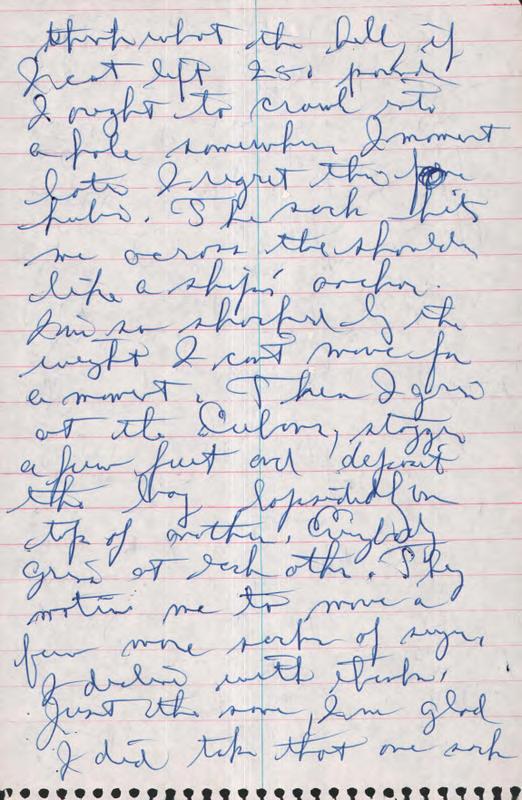 think what the hell, if
I can't lift 250 pounds
I ought to crawl into
a hole somewhere. A moment
later I regret this
hubris. The sack hits
me across the shoulders
like a ship's anchor.
I'm so shocked by the
weight I can't move for
a moment. Then I grin
at the Cubans, stagger
a few feet and deposit
the bag lopsided on
top of another. Everybody
grins at each other. They
motion me to move a
few more sacks of sugar,
I decline with thanks.
Just the same, I am glad
I did take that one sack